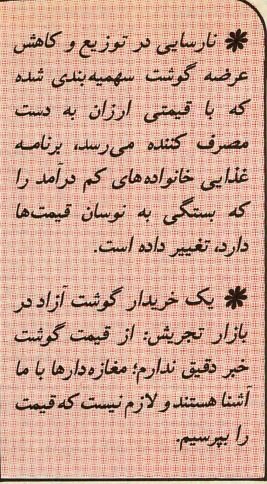 ✱ نارسایی در توزیع و کاهش
عرضه گوشت سهمیه‌بندی شده
که با قیمتی ارزان به دست
مصرف کننده می‌رسد، برنامه
غذایی خانواده‌های کم درآمد را
که بستگی به نوسان قیمت‌ها
دارد، تغییر داده است.
✱ یک خریدار گوشت آزاد در
بازار تجریش: از قیمت گوشت
خبر دقیق ندارم؛ مغازه‌دارها با ما
آشنا هستند و لازم نیست که قیمت
را بپرسیم.